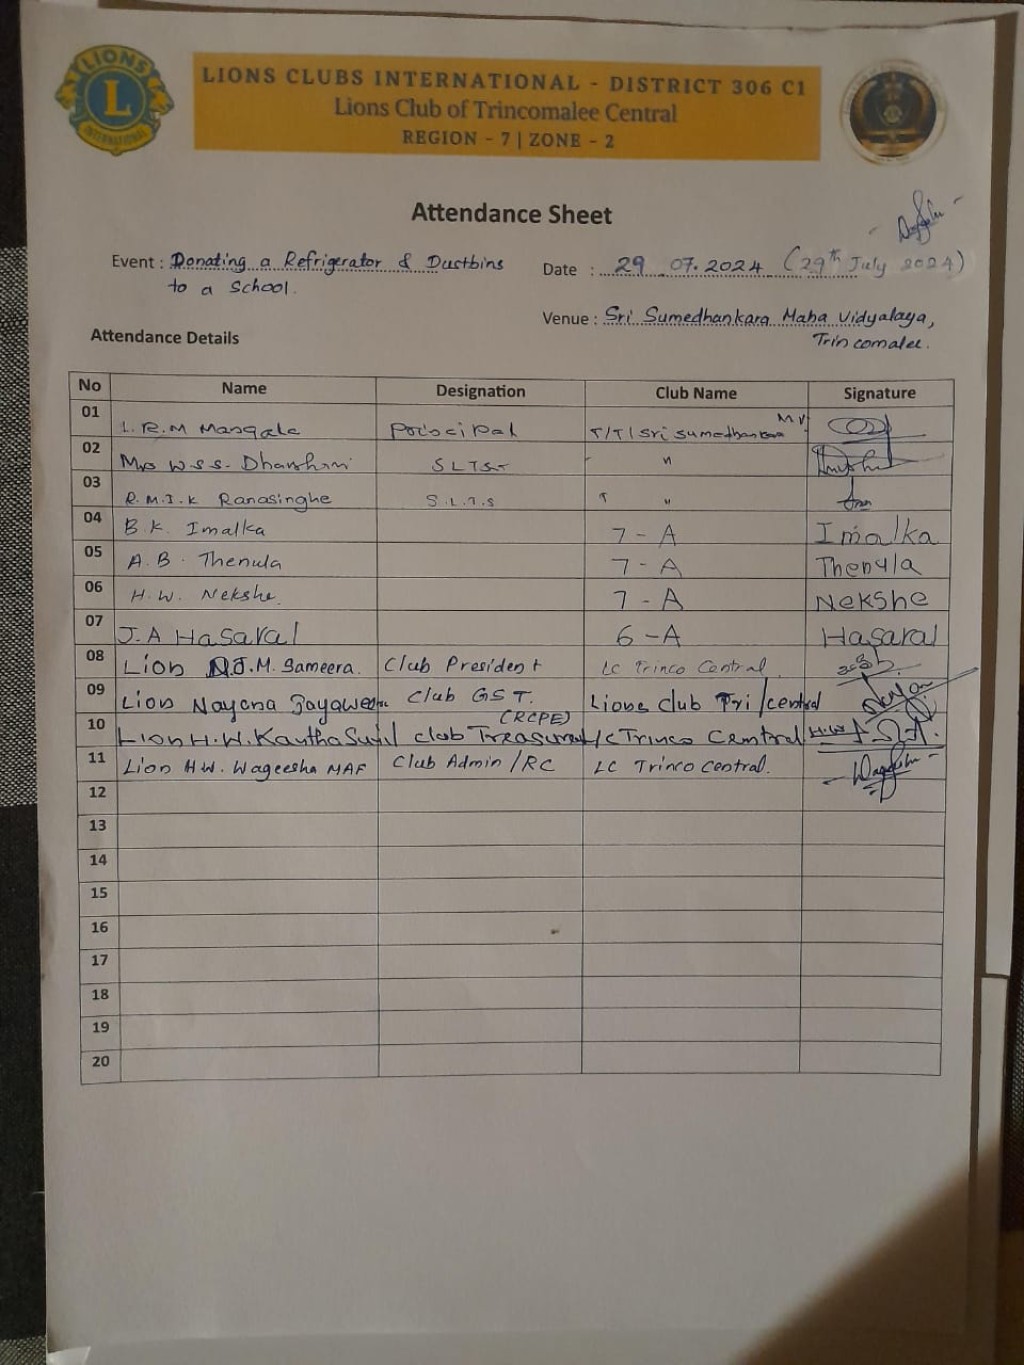 LIONS
L
INTERNATIONAL
LIONS CLUBS INTERNATIONAL - DISTRICT 306 C1
Lions Club of Trincomalee Central
REGION - 7 | ZONE - 2
Attendance Sheet
Event : Donating a Refrigerator & Dustbins
to a School.
Date : 29 .07.2024 (29th July 2024)
Venue : Sri Sumedhankara Maha Vidyalaya,
Trincomalee.
Attendance Details
No Name Designation Club Name Signature
01 R.M Principal T/T/ Sri sumedhankara MV
02 Mrs W.S.S. "
03 R.M.I.K Ranasinghe S.L.T.S "
04 B.K. Imalka 7 - A Imalka
05 A.B. Thenula 7 - A Thenula
06 H.W. Nekshe. 7 - A Nekshe
07 J.A Hasaral 6 - A Hasaral
08 Lion J.M. Sameera. Club President LC Trinco Central
09 Lion Nayana Club GST. Lions Club Tri/central
10 Lion H.W. Kantha Sunil Club Treasurer (RCPE) L/C Trinco Central
11 Lion H.W. Wageesha MAF Club Admin /RC LC Trinco Central.
12
13
14
15
16
17
18
19
20